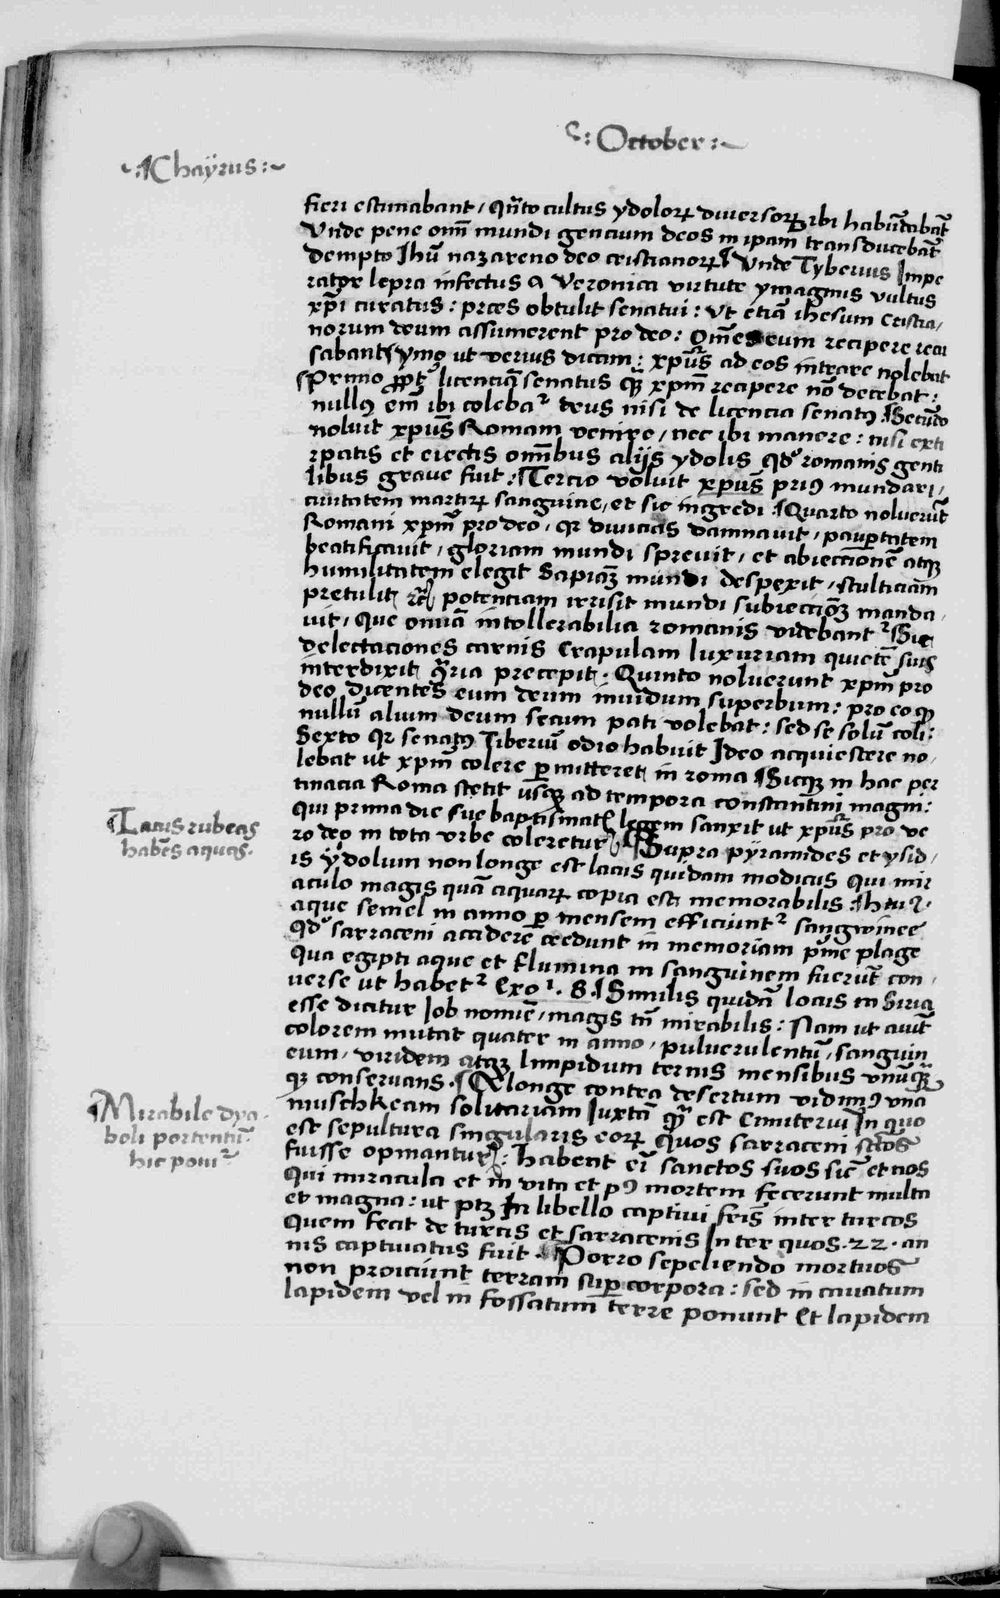 Chaÿrus
October
fieri estimabant / Qñto cultus ydoloꝝ diuersoꝝ ibi habũdabãt
Vnde pene om̃ mundi gencium deos in ip̃am transducebãt
dempto Jhũ nazareno deo cristianoꝝ Vnde Tyberius Impe
rator lepra infectus a Veronica virtute ymaginis vultus
xp̃i curatus : p̃ces obtulit senatui : Vt etiã ihesum cristia /
norum deum assumerent pro deo : Om̃es eum recipere recu
sabant ymo ut verius dicam : xp̃us ad eos intrare nolebat
Primo ꝓpt̾ licenciã senatus qꝫ xp̃m recipere nõ decebat :
nullꝰ em̃ ibi colebat᷑ deus nisi de licencia senatꝰ Secũdo
noluit xp̃us Romam venire / nec ibi manere : nisi exti
rpatis et eiectis om̃ibus alijs ydolis qd̾ romanis genti
libus graue fuit : Tercio voluit xp̃us priꝰ mundari /
ciuitatem martirꝝ sanguine / et sic ingredi : Quarto noluerũt
Romani xp̃m pro deo / qr diuicias damnauit / paup̱tatem
beatificauit / gloriam mundi spreuit / et abieccionẽ atqꝫ
humilitatem elegit Sapiãꝫ mundi despexit / stulticiam
pretulit rc̃ potenciam irrisit mundi subiecciõꝫ manda /
uit / Que omnia intollerabilia romanis videbant᷑ Sic
delectaciones carnis Crapulam luxuriam quietẽ suis
interdixit 9̃ria precepit / Quinto noluerunt xp̃m pro
deo dicentes eum deum inuidum superbum : pro eo qꝫ
nullũ alium deum secum pati volebat : sed se solũ coli :
Sexto qr senatꝰ Tiberiũ odio habuit Ideo acquiescere no /
lebat ut xp̃m colere p̱mitteret in roma Sicqꝫ in hac per
tinacia Roma stetit usqꝫ ad tempora constantini magni :
Qui prima die sue baptismatꝭ legem sanxit ut xp̃us pro ve
ro deo in tota vrbe coleretur Supra pÿramides et ysid /
is ÿdolum non longe est lacus quidam modicus Qui mir
aculo magis quã aquaꝝ copia est memorabilis Hui9
aque semel in anno p̱ mensem efficiunt᷑ sangwinee
Qd̾ sarraceni accidere c̃edunt in memoriam p̃me plage
Qua egipti aque et flumina in sanguinem fuerũt con /
uerse ut habet᷑ Exo̾ . 8. Similis quidã locus in Siria
esse dicitur Job nomiẽ / magis tñ mirabilis : Nam ut aiũt
colorem mutat quater in anno / puluerulentũ / sanguin
eum / viridem atqꝫ limpidum ternis mensibus vnũquẽ
qꝫ conseruans Nõ longe contra desertum vidimꝰ vnã
muschkeam solitariam Juxtã qã est Cimiteriũ In quo
est sepultura singularis eoꝝ Quos sarraceni sc̃tos
fuisse opinantur : Habent em̃ sanctos suos sic̃ et nos
Qui miracula et in vita et pꝰ mortem fecerunt multa
et magna : ut ptꝫ In libello captiui fr̃is inter turcos
Quem fecit de turcis et sarracenis Inter quos . 22 . an
nis captiuatus fuit Porro sepeliendo mortuos
non proiciunt terram sup̱ corpora : sed in cauatum
lapidem vel in fossatum terre ponunt Et lapidem
Lacus rubeas
habẽs aquas.
Mirabile dya-
boli portentũ
hic ponit᷑